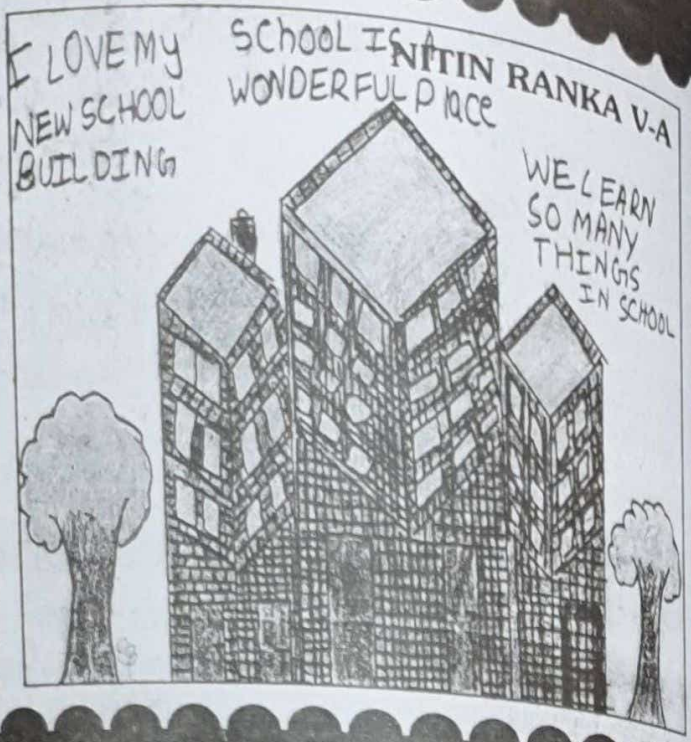 I LOVE MY
NEW SCHOOL
BUILDING
SCHOOL IS A
WONDERFUL PLACE
NITIN RANKA V-A
WE LEARN
SO MANY
THINGS
IN SCHOOL